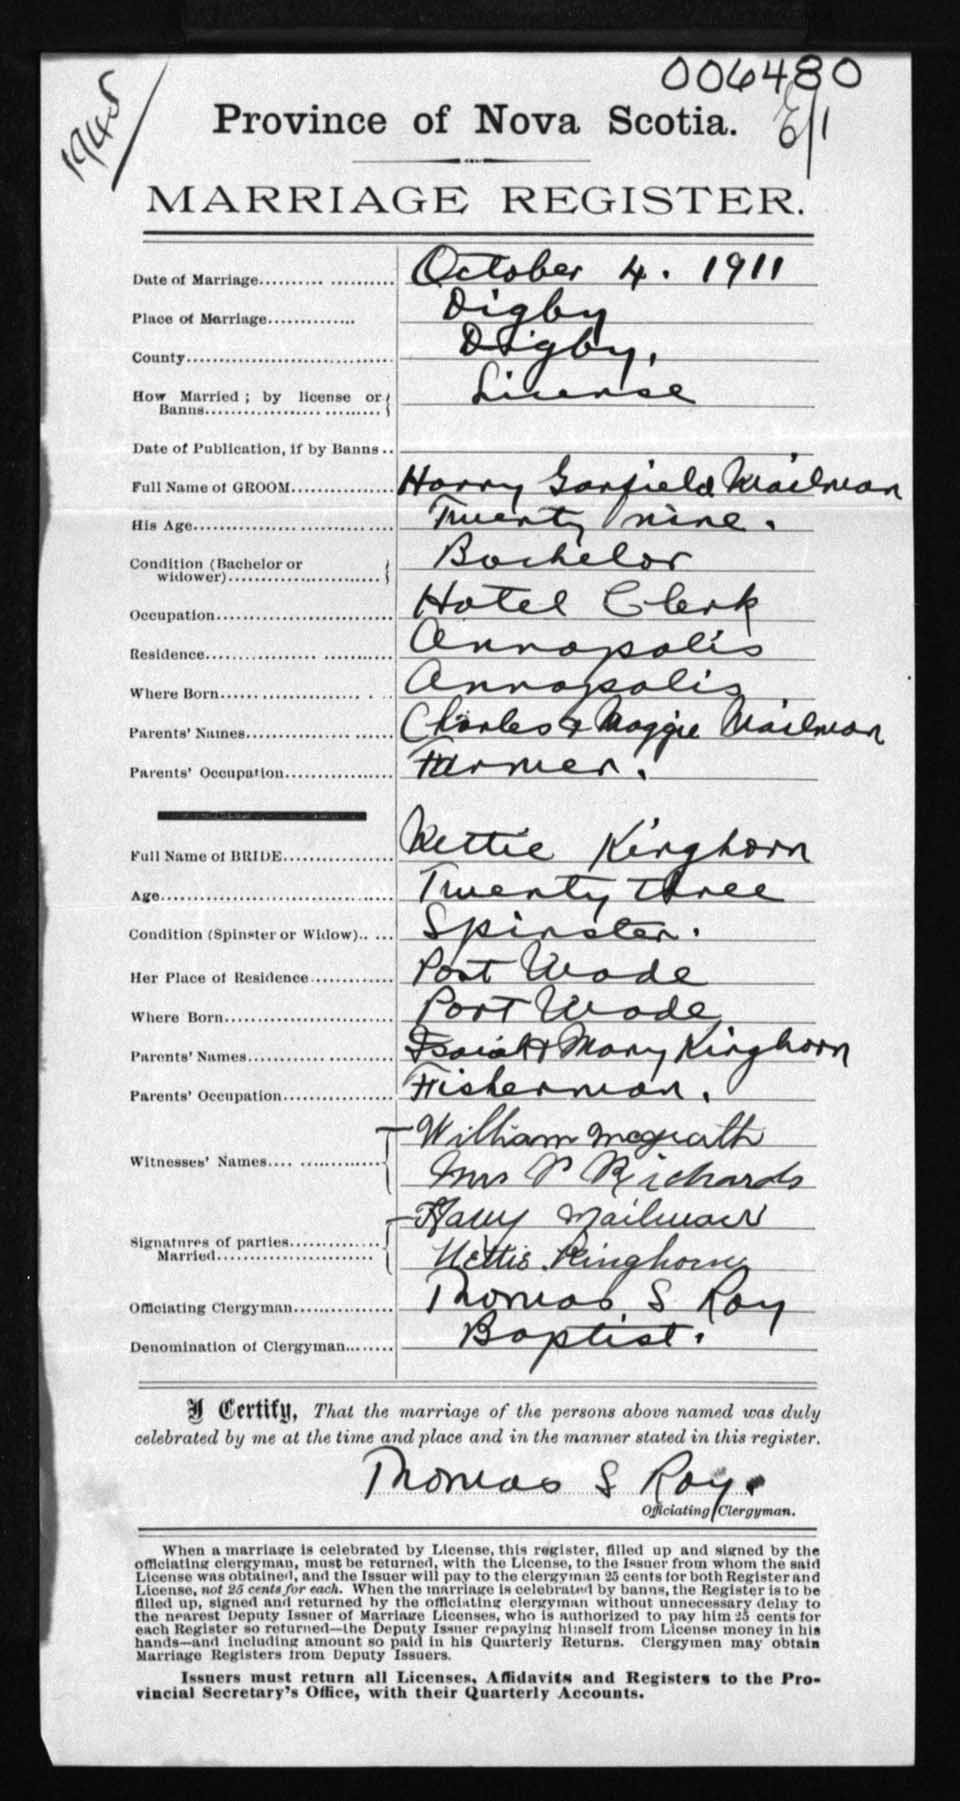 006480
1945
E/1
Province of Nova Scotia.
MARRIAGE REGISTER.
Date of Marriage.......... October 4. 1911
Place of Marriage............. Digby
County............................. Digby.
How Married ; by license or
Banns......................... License
Date of Publication, if by Banns ..
Full Name of GROOM............... Harry Garfield Mailman
His Age............................. Twenty nine.
Condition (Bachelor or
widower)...................... Bachelor
Occupation......................... Hotel Clerk
Residence........................... Annapolis
Where Born......................... Annapolis
Parents' Names..................... Charles & Maggie Mailman
Parents' Occupation............... Farmer.
Full Name of BRIDE................ Nettie Kinghorn
Age.................................. Twenty three
Condition (Spinster or Widow)..... Spinster.
Her Place of Residence............ Port Wade
Where Born......................... Port Wade
Parents' Names..................... Isaiah & Mary Kinghorn
Parents' Occupation............... Fisherman.
William McGrath
Witnesses' Names.................
Mrs P Richards
Harry Mailman
Signatures of parties.............
Married.......................
Nettie Kinghorn
Officiating Clergyman.............. Thomas S Roy
Denomination of Clergyman........ Baptist.
I Certify, That the marriage of the persons above named was duly
celebrated by me at the time and place and in the manner stated in this register.
Thomas S Roy.
Officiating Clergyman.
When a marriage is celebrated by License, this register, filled up and signed by the
officiating clergyman, must be returned, with the License, to the Issuer from whom the said
License was obtained, and the Issuer will pay to the clergyman 25 cents for both Register and
License, not 25 cents for each. When the marriage is celebrated by banns, the Register is to be
filled up, signed and returned by the officiating clergyman without unnecessary delay to
the nearest Deputy Issuer of Marriage Licenses, who is authorized to pay him 25 cents for
each Register so returned—the Deputy Issuer repaying himself from License money in his
hands—and including amount so paid in his Quarterly Returns. Clergymen may obtain
Marriage Registers from Deputy Issuers.
Issuers must return all Licenses, Affidavits and Registers to the Pro-
vincial Secretary's Office, with their Quarterly Accounts.